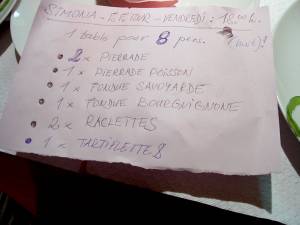 SIMONA - RETOUR - VENDREDI : 18.00 h.
1 table pour 8 pers. 
2 x PIERRADE
1 x PIERRADE POISSON
1 x FONDUE SAVOYARDE
1 x FONDUE BOURGUIGNONE
2 x RACLETTES
1 x TARTIFLETTES